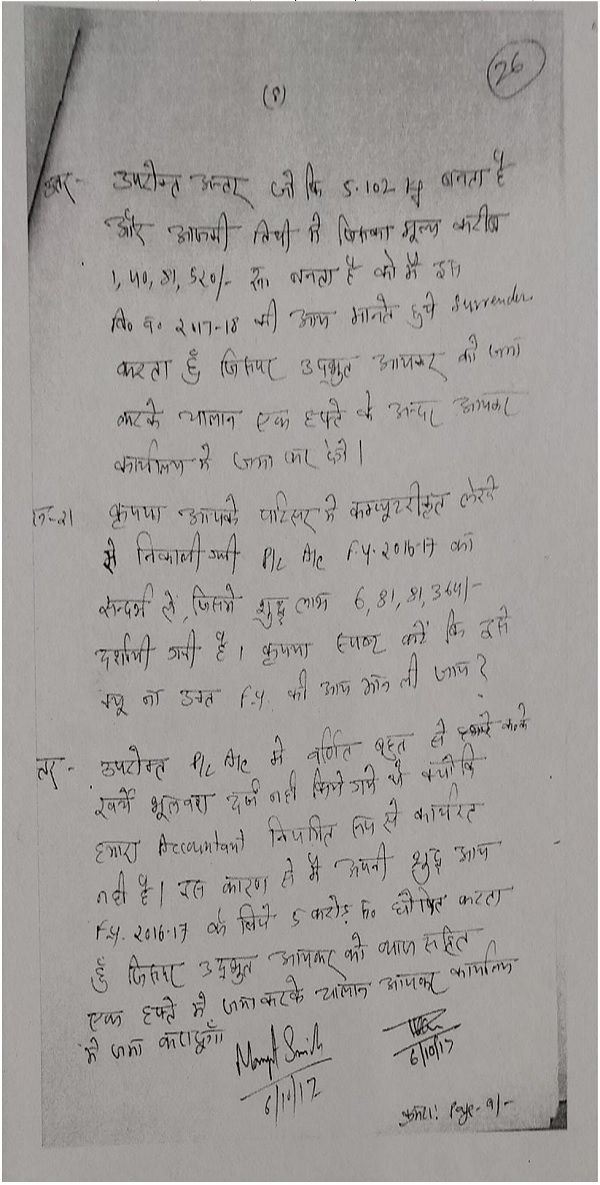 26
(8)
उत्तर- उपरोक्त अन्तर जो कि 5.102 kg बनता है
और आजकी तिथी में जिसका मूल्य करीब
1,50,81,520/- रू. बनता है को मैं इस
वि० व० 2017-18 की आय मानते हुये Surrender
करता हूँ जिसपर उद्भुत आयकर को जमा
करके चालान एक हफ्ते के अन्दर आयकर
कार्यालय मे जमा कर देंगे।
प्र-21 कृपया आपके परिसर मे कम्प्यूटरीकृत लेखे
से निकाली गयी P/L A/c F.Y. 2016-17 का
सन्दर्भ लें, जिसमे शुद्ध लाभ 6,81,81,364/-
दर्शायी गयी है। कृपया स्पष्ट करें कि इसे
क्यू ना उक्त F.Y. की आय मान ली जाय?
उत्तर- उपरोक्त P/L A/c मे वर्णित बहुत से
खर्चे भूलवश दर्ज नही किये गये थे क्योकि
हमारा Accountant नियमित रूप से कार्यरत
नही है। इस कारण से मैं अपनी शुद्ध आय
F.Y. 2016-17 के लिये 5 करोड़ रू० घोषित करता
हूँ जिसपर उद्भुत आयकर को ब्याज सहित
एक हफ्ते मे जमा करके चालान आयकर कार्यालय
मे जमा कराढूगाँ
6/10/17
6/10/17
क्रमश: Page-9/-